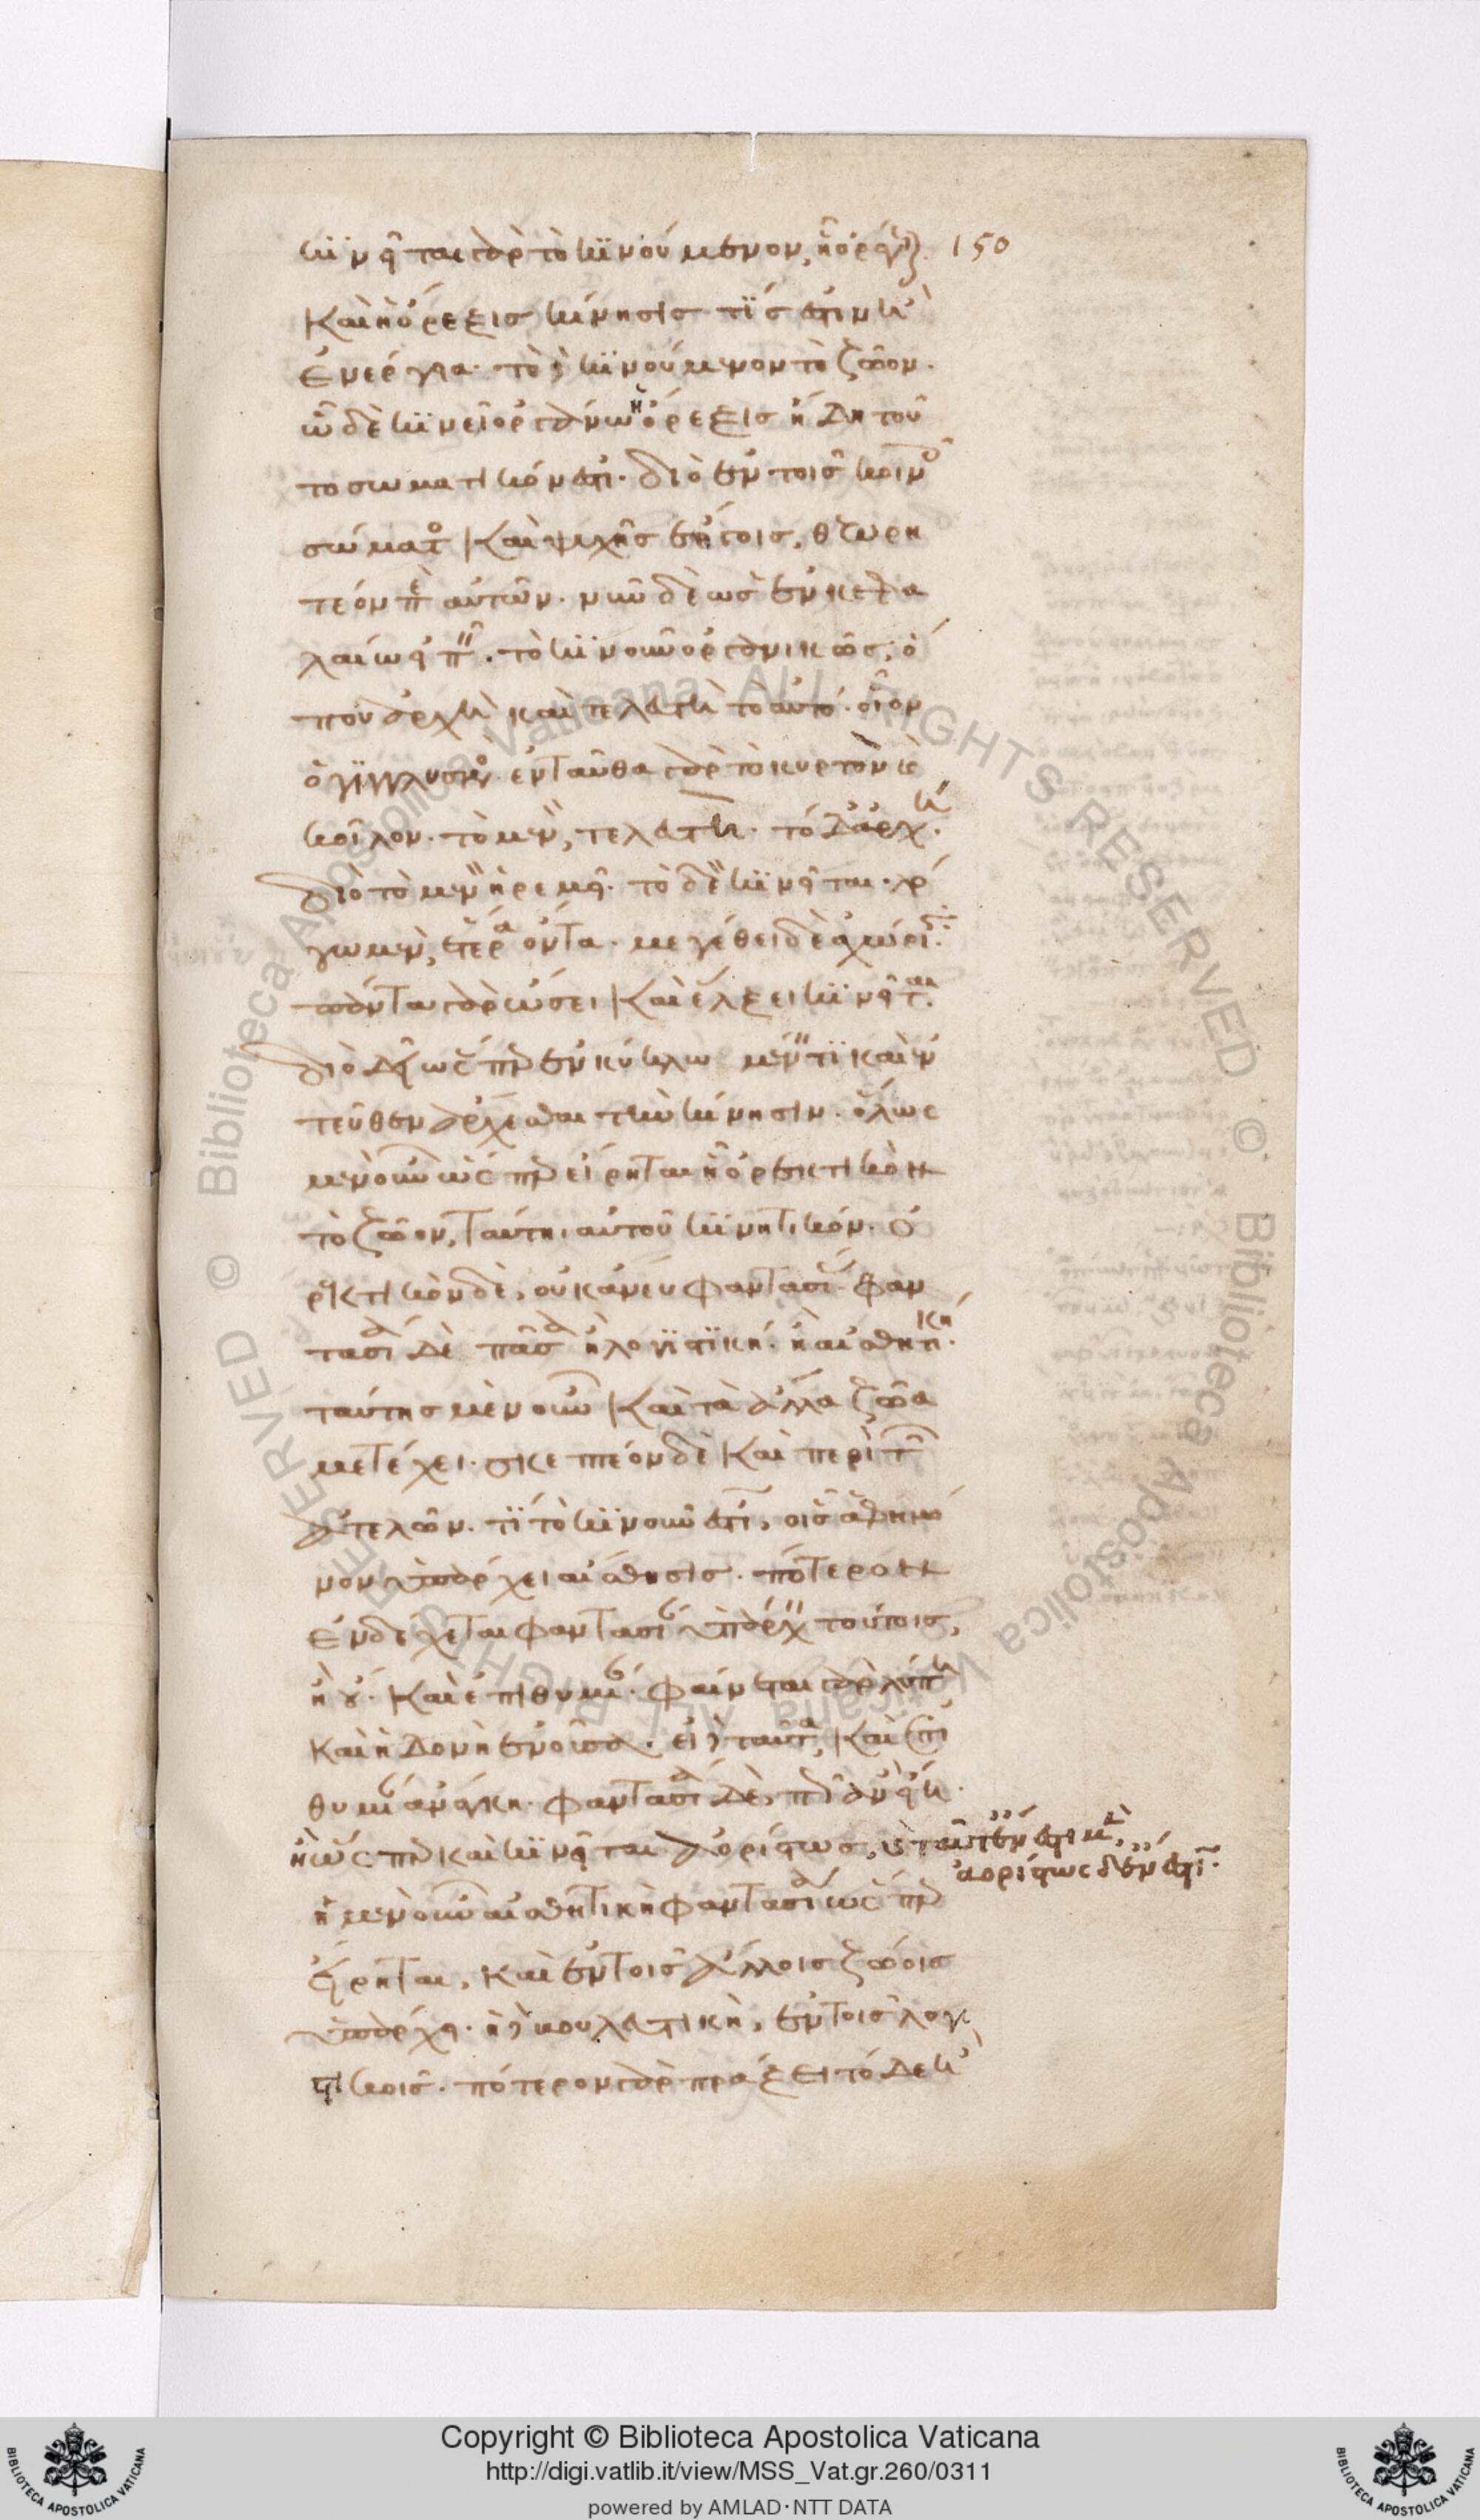 κϊνεῖται γὰρ τὸ κϊνούμενον, ἧ ὀρέγεται. 150
καὶ ἡ ὄρεξις κίνησίς τΐς ἐστιν ἢ
ἐνέργεια· τὸ δὲ κϊνούμενον τὸ ζῶον.
ὧ δὲ κϊνεῖ ὀργάνω ἡ ὄρεξις ἤδη τοῦ
το σωματικόν ἐστι· διὸ ἐν τοῖς κοινοῖς
σώματος καὶ ψυχῆς ἔργοις, θεωρη
τέον περὶ αὐτῶν. νῦν δὲ ὡς ἐν κεφα
λαίω εἰπεῖν. τὸ κϊνοῦν ὀργανικῶς, ὅ
που ἀρχὴ καὶ τελευτὴ τὸ αὐτό. οἷον
ὁ γϊγγλυσμός. ἐνταῦθα γὰρ τὸ κυρτὸν καὶ
κοῖλον. τὸ μὲν, τελευτὴ. τὸ δ' ἀρχή.
διὸ τὸ μὲν ἠρεμεῖ. τὸ δὲ κϊνεῖται. λό
γω μὲν, ἕτερα ὄντα. μεγέθει δὲ ἀχώριστα.
πάντα γὰρ ὤσει καὶ ἕλξει κϊνεῖται.
διὸ δεῖ ὥσπερ ἐν κύκλω μένειν τϊ καὶ ἐν
τεῦθεν ἄρχεσθαι τὴν κίνησιν. ὅλως
μὲν οὖν ὥσπερ εἴρηται ἧ ὀρεκτικὸν
τὸ ζῶον, ταύτηι αὑτοῦ κϊνητικόν. ὀ
ρεκτικὸν δὲ, οὐκ ἄνευ φαντασίας. φαν
τασία δὲ πᾶσα ἢ λογϊστϊκή. ἢ αἰσθητική.
ταύτης μὲν οὖν καὶ τὰ ἄλλα ζῶα
μετέχει. σκεπτέον δὲ καὶ περὶ τῶν
ἀτελῶν. τΐ τὸ κϊνοῦν ἐστιν, οἷς ἁφῆ μό
νον ὑπάρχει αἴσθησις. πότερον
ἐνδέχεται φαντασίαν ὑπάρχειν τούτοις,
ἢ οὔ. καὶ ἐπιθυμίαν. φαίνεται γὰρ λύπη
καὶ ἡδονὴ ἐνοῦσα. εἰ δὲ ταῦτα, καὶ ἐπι
θυμίαν ἀνάγκη. φαντασία δὲ, πῶς ἂν ἐνείη.
ἢ ὥσπερ καὶ κϊνεῖται ἀορίστως, καὶ ταῦτ' ἔνεστι μὲν,
ἀορίστως δ' ἔνεστιν.
ἡ μὲν οὖν αἰσθητικὴ φαντασία ὥσπερ
εἴρηται, καὶ ἐν τοῖς ἄλλοις ζώοις
ὑπάρχει. ἡ δὲ βουλευτικὴ, ἐν τοῖς λογι
στικοῖς. πότερον γὰρ πράξει τόδε ἢ